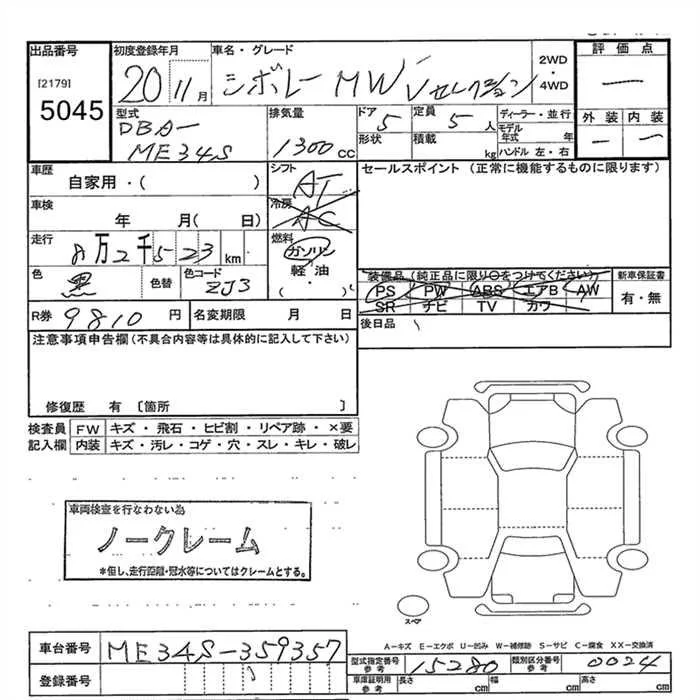 出品番号
[2179]
5045
初度登録年月
20 11月
車名・グレード
シボレー MW Vセレクション
2WD
・
4WD
評価点
—
外装 内装
— —
型式
DBA-
ME34S
排気量
1300CC
ドア
5
形状
定員
5人
積載
kg
ディーラー・並行
モデル年式 年
ハンドル 左・右
車歴
自家用・( )
シフト
AT
冷房
AC
セールスポイント (正常に機能するものに限ります)
車検
年 月( 日)
走行
8万2千523km
燃料
ガソリン
軽油
・
( )
色
黒
色替
色コード
ZJ3
装備品(純正品に限り○をつけてください)
PS PW ABS エアB AW
SR ナビ TV カワ
新車保証書
有・無
R券 9810円
名変期限 月 日
後日品
注意事項申告欄(不具合内容等は具体的に記入して下さい)
修復歴 有 [箇所 ]
検査員 FW キズ・飛石・ヒビ割・リペア跡・×要
記入欄 内装 キズ・汚レ・コゲ・穴・スレ・キレ・破レ
車両検査を行なわない為
ノークレーム
*但し、走行距離・冠水等についてはクレームとする。
スペア
A−キズ E−エクボ U−凹み W−補修跡 S−サビ C−腐食 XX−交換済
車台番号 ME34S-359357
型式指定番号
参考
15280
類別区分番号
参考
0024
登録番号
車庫証明用
参考
長さ cm 幅 cm 高さ cm